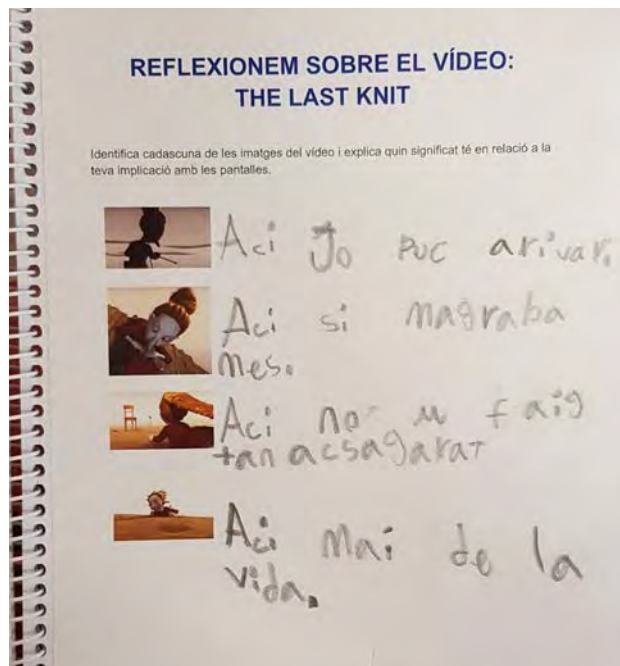 REFLEXIONEM SOBRE EL VÍDEO:
THE LAST KNIT
Identifica cadascuna de les imatges del vídeo i explica quin significat té en relació a la
teva implicació amb les pantalles.
Aci Jo puc arivar.
Aci si magraba
mes.
Aci no u faig
tan acsagarat
Aci mai de la
vida.